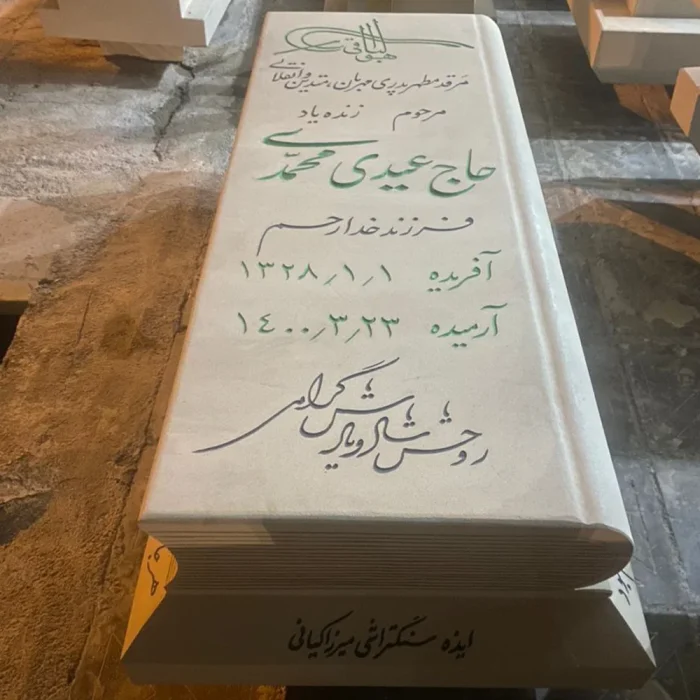 هوالباقی
مرقد مطهر پدری مهربان، متدین و انقلابی
مرحوم زنده یاد
حاج عیدی محمدی
فرزند خدارحم
آفریده ۱۳۲۸/۱/۱
آرمیده ۱۴۰۰/۳/۲۳
روحش شاد و یادش گرامی
ایذه سنگتراشی میرزاکیانی